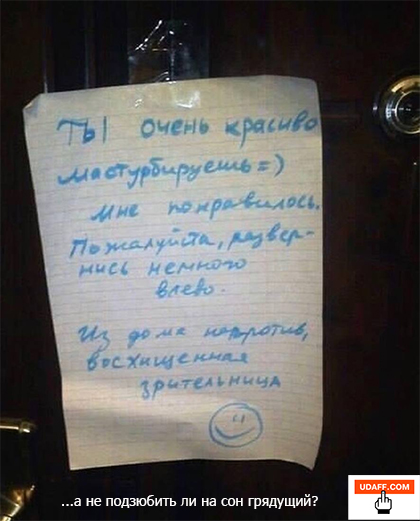 Ты очень красиво
мастурбируешь =)
Мне понравилось.
Пожалуйста, развер-
нись немного
влево.
Из дома напротив,
восхищенная
зрительница
...а не подзюбить ли на сон грядущий?
UDAFF.COM